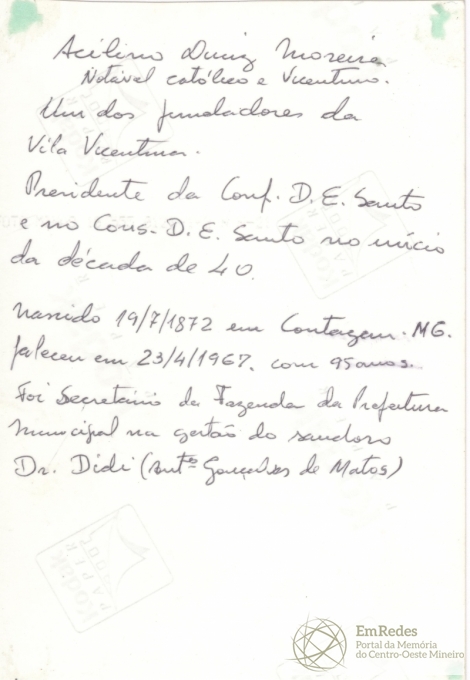 Acilino Diniz Moreira
Notável católico e Vicentino.
Um dos fundadores da
Vila Vicentina.
Presidente da Conf. D. E. Santo
e no Cons. D. E. Santo no início
da década de 40.
nascido 19/7/1872 em Contagem. MG.
faleceu em 23/4/1967. com 95 anos.
Foi Secretário da Fazenda da Prefeitura
municipal na gestão do saudoso
Dr. Didi (Antº Gonçalves de Matos)
Kodak
PAPIER
Kodak
PAPIER
EmRedes
Portal da Memória
do Centro-Oeste Mineiro